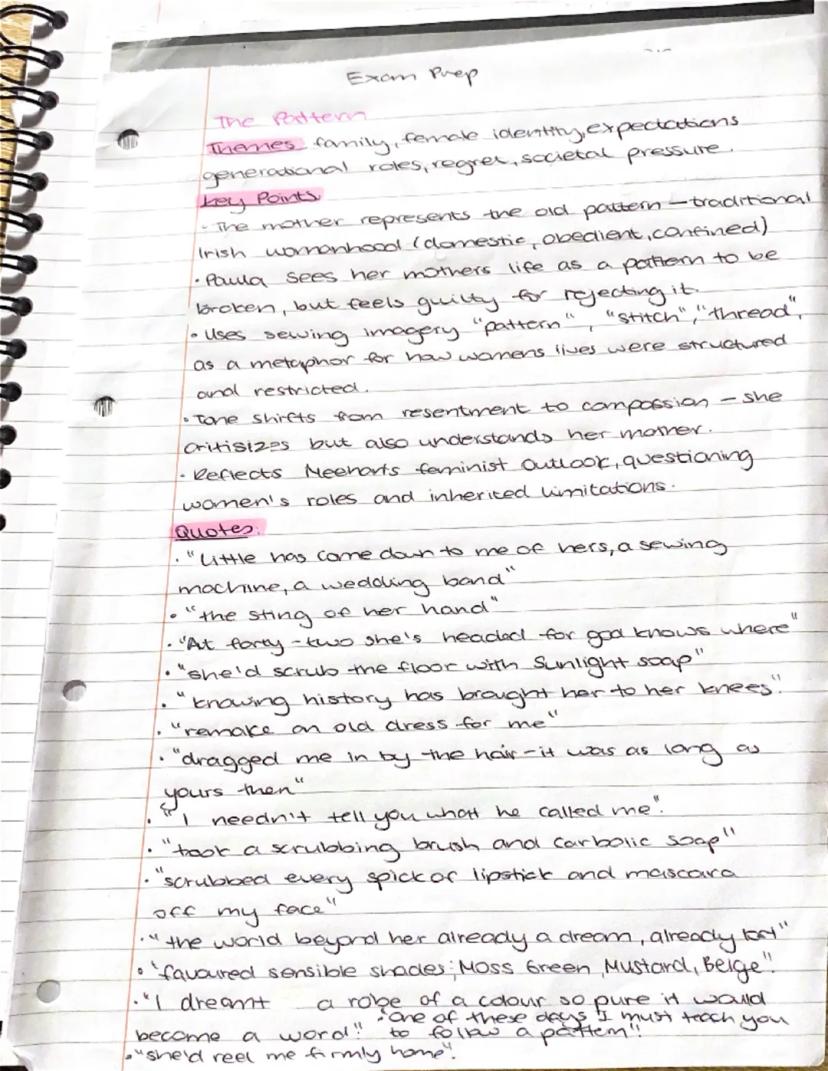 Exam Prep
The Pattern
Themes family, female identity, expectations
generational roles, regret, societal pressure.
Key Points
· The mother represents the old pattern – traditional
Irish womanhood (domestic, obedient, confined)
· Paula sees her mothers life as a pattern to be
broken, but feels guilty for rejecting it.
· Uses sewing imagery "pattern", "stitch", "thread",
as a metaphor for how womens lives were structured
and restricted.
· Tone shifts from resentment to compassion – she
critisizes but also understands her mother.
· Reflects Meehan's feminist outlook, questioning
women's roles and inherited limitations.
Quotes:
· "Little has come down to me of hers, a sewing
machine, a wedding band"
· "the sting of her hand"
· "At forty-two she's headed for god knows where"
· "she'd scrub the floor with Sunlight soap"
· "knowing history has brought her to her knees".
· "remake an old dress for me"
· "dragged me in by the hair – it was as long as
yours then"
· "I needn't tell you what he called me".
· "took a scrubbing brush and carbolic soap"
· "scrubbed every spick of lipstick and mascara
off my face"
· "the world beyond her already a dream, already lost"
· "favoured sensible shades; Moss Green, Mustard, Beige".
· "I dreamt a robe of a colour so pure it would
become a word".
· "one of these days I must teach you
to follow a pattern".
· "she'd reel me firmly home".